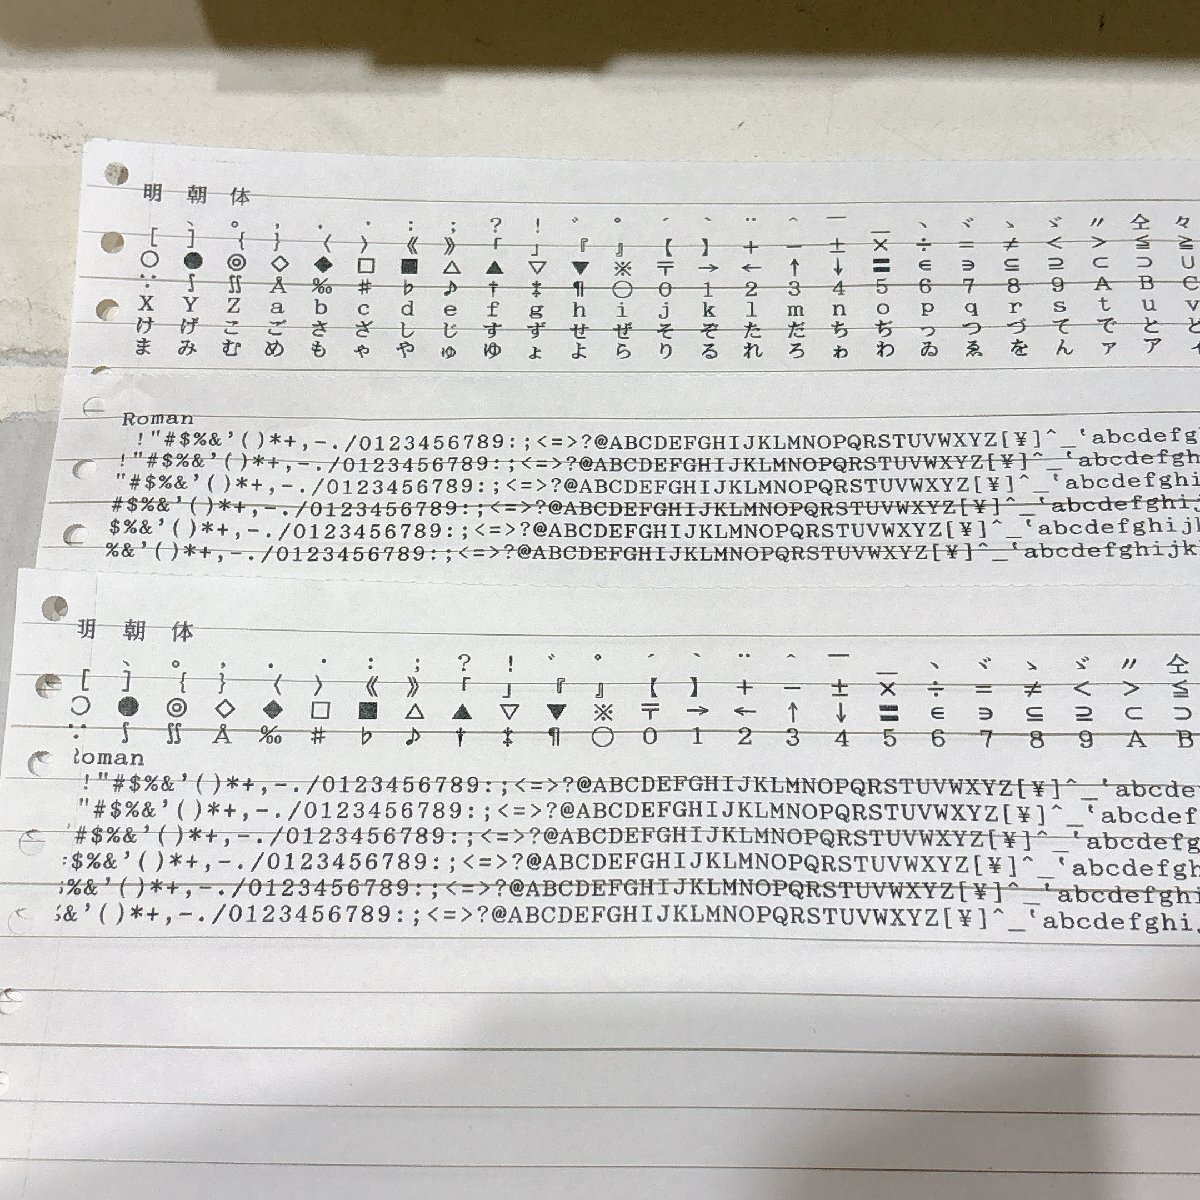 明 朝 体
、 。 , . ・ : ; ? ! ゛ ゜ ´ ` ¨ ^ ‾ _ ヽ ヾ ゝ ゞ 〃 仝 々
[ ] { } 〈 〉 《 》 「 」 『 』 【 】 + − ± × ÷ = ≠ < > ≦ ≧
○ ● ◎ ◇ ◆ □ ■ △ ▲ ▽ ▼ ※ 〒 → ← ↑ ↓ 〓 ∈ ∋ ⊆ ⊇ ⊂ ⊃ ∪
∵ ∫ ∬ Å ‰ # ♭ ♪ † ‡ ¶ ◯ 0 1 2 3 4 5 6 7 8 9 A B C
X Y Z a b c d e f g h i j k l m n o p q r s t u v
け げ こ ご さ ざ し じ す ず せ ぜ そ ぞ た だ ち ぢ っ つ づ て で と ど
ま み む め も ゃ や ゅ ゆ ょ よ ら り る れ ろ ゎ わ ゐ ゑ を ん ァ ア ィ
Roman
!"#$%&'()*+,-./0123456789:;<=>?@ABCDEFGHIJKLMNOPQRSTUVWXYZ[¥]^_`abcdefg
!"#$%&'()*+,-./0123456789:;<=>?@ABCDEFGHIJKLMNOPQRSTUVWXYZ[¥]^_`abcdefgh
"#$%&'()*+,-./0123456789:;<=>?@ABCDEFGHIJKLMNOPQRSTUVWXYZ[¥]^_`abcdefghi
#$%&'()*+,-./0123456789:;<=>?@ABCDEFGHIJKLMNOPQRSTUVWXYZ[¥]^_`abcdefghij
$%&'()*+,-./0123456789:;<=>?@ABCDEFGHIJKLMNOPQRSTUVWXYZ[¥]^_`abcdefghij
%&'()*+,-./0123456789:;<=>?@ABCDEFGHIJKLMNOPQRSTUVWXYZ[¥]^_`abcdefghijk
明 朝 体
、 。 , . ・ : ; ? ! ゛ ゜ ´ ` ¨ ^ ‾ _ ヽ ヾ ゝ ゞ 〃 仝
[ ] { } 〈 〉 《 》 「 」 『 』 【 】 + − ± × ÷ = ≠ < > ≦
○ ● ◎ ◇ ◆ □ ■ △ ▲ ▽ ▼ ※ 〒 → ← ↑ ↓ 〓 ∈ ∋ ⊆ ⊇ ⊂ ⊃
∵ ∫ ∬ Å ‰ # ♭ ♪ † ‡ ¶ ◯ 0 1 2 3 4 5 6 7 8 9 A B
Roman
!"#$%&'()*+,-./0123456789:;<=>?@ABCDEFGHIJKLMNOPQRSTUVWXYZ[¥]^_`abcde
"#$%&'()*+,-./0123456789:;<=>?@ABCDEFGHIJKLMNOPQRSTUVWXYZ[¥]^_`abcdef
#$%&'()*+,-./0123456789:;<=>?@ABCDEFGHIJKLMNOPQRSTUVWXYZ[¥]^_`abcdefg
$%&'()*+,-./0123456789:;<=>?@ABCDEFGHIJKLMNOPQRSTUVWXYZ[¥]^_`abcdefgh
%&'()*+,-./0123456789:;<=>?@ABCDEFGHIJKLMNOPQRSTUVWXYZ[¥]^_`abcdefghi
&'()*+,-./0123456789:;<=>?@ABCDEFGHIJKLMNOPQRSTUVWXYZ[¥]^_`abcdefghij